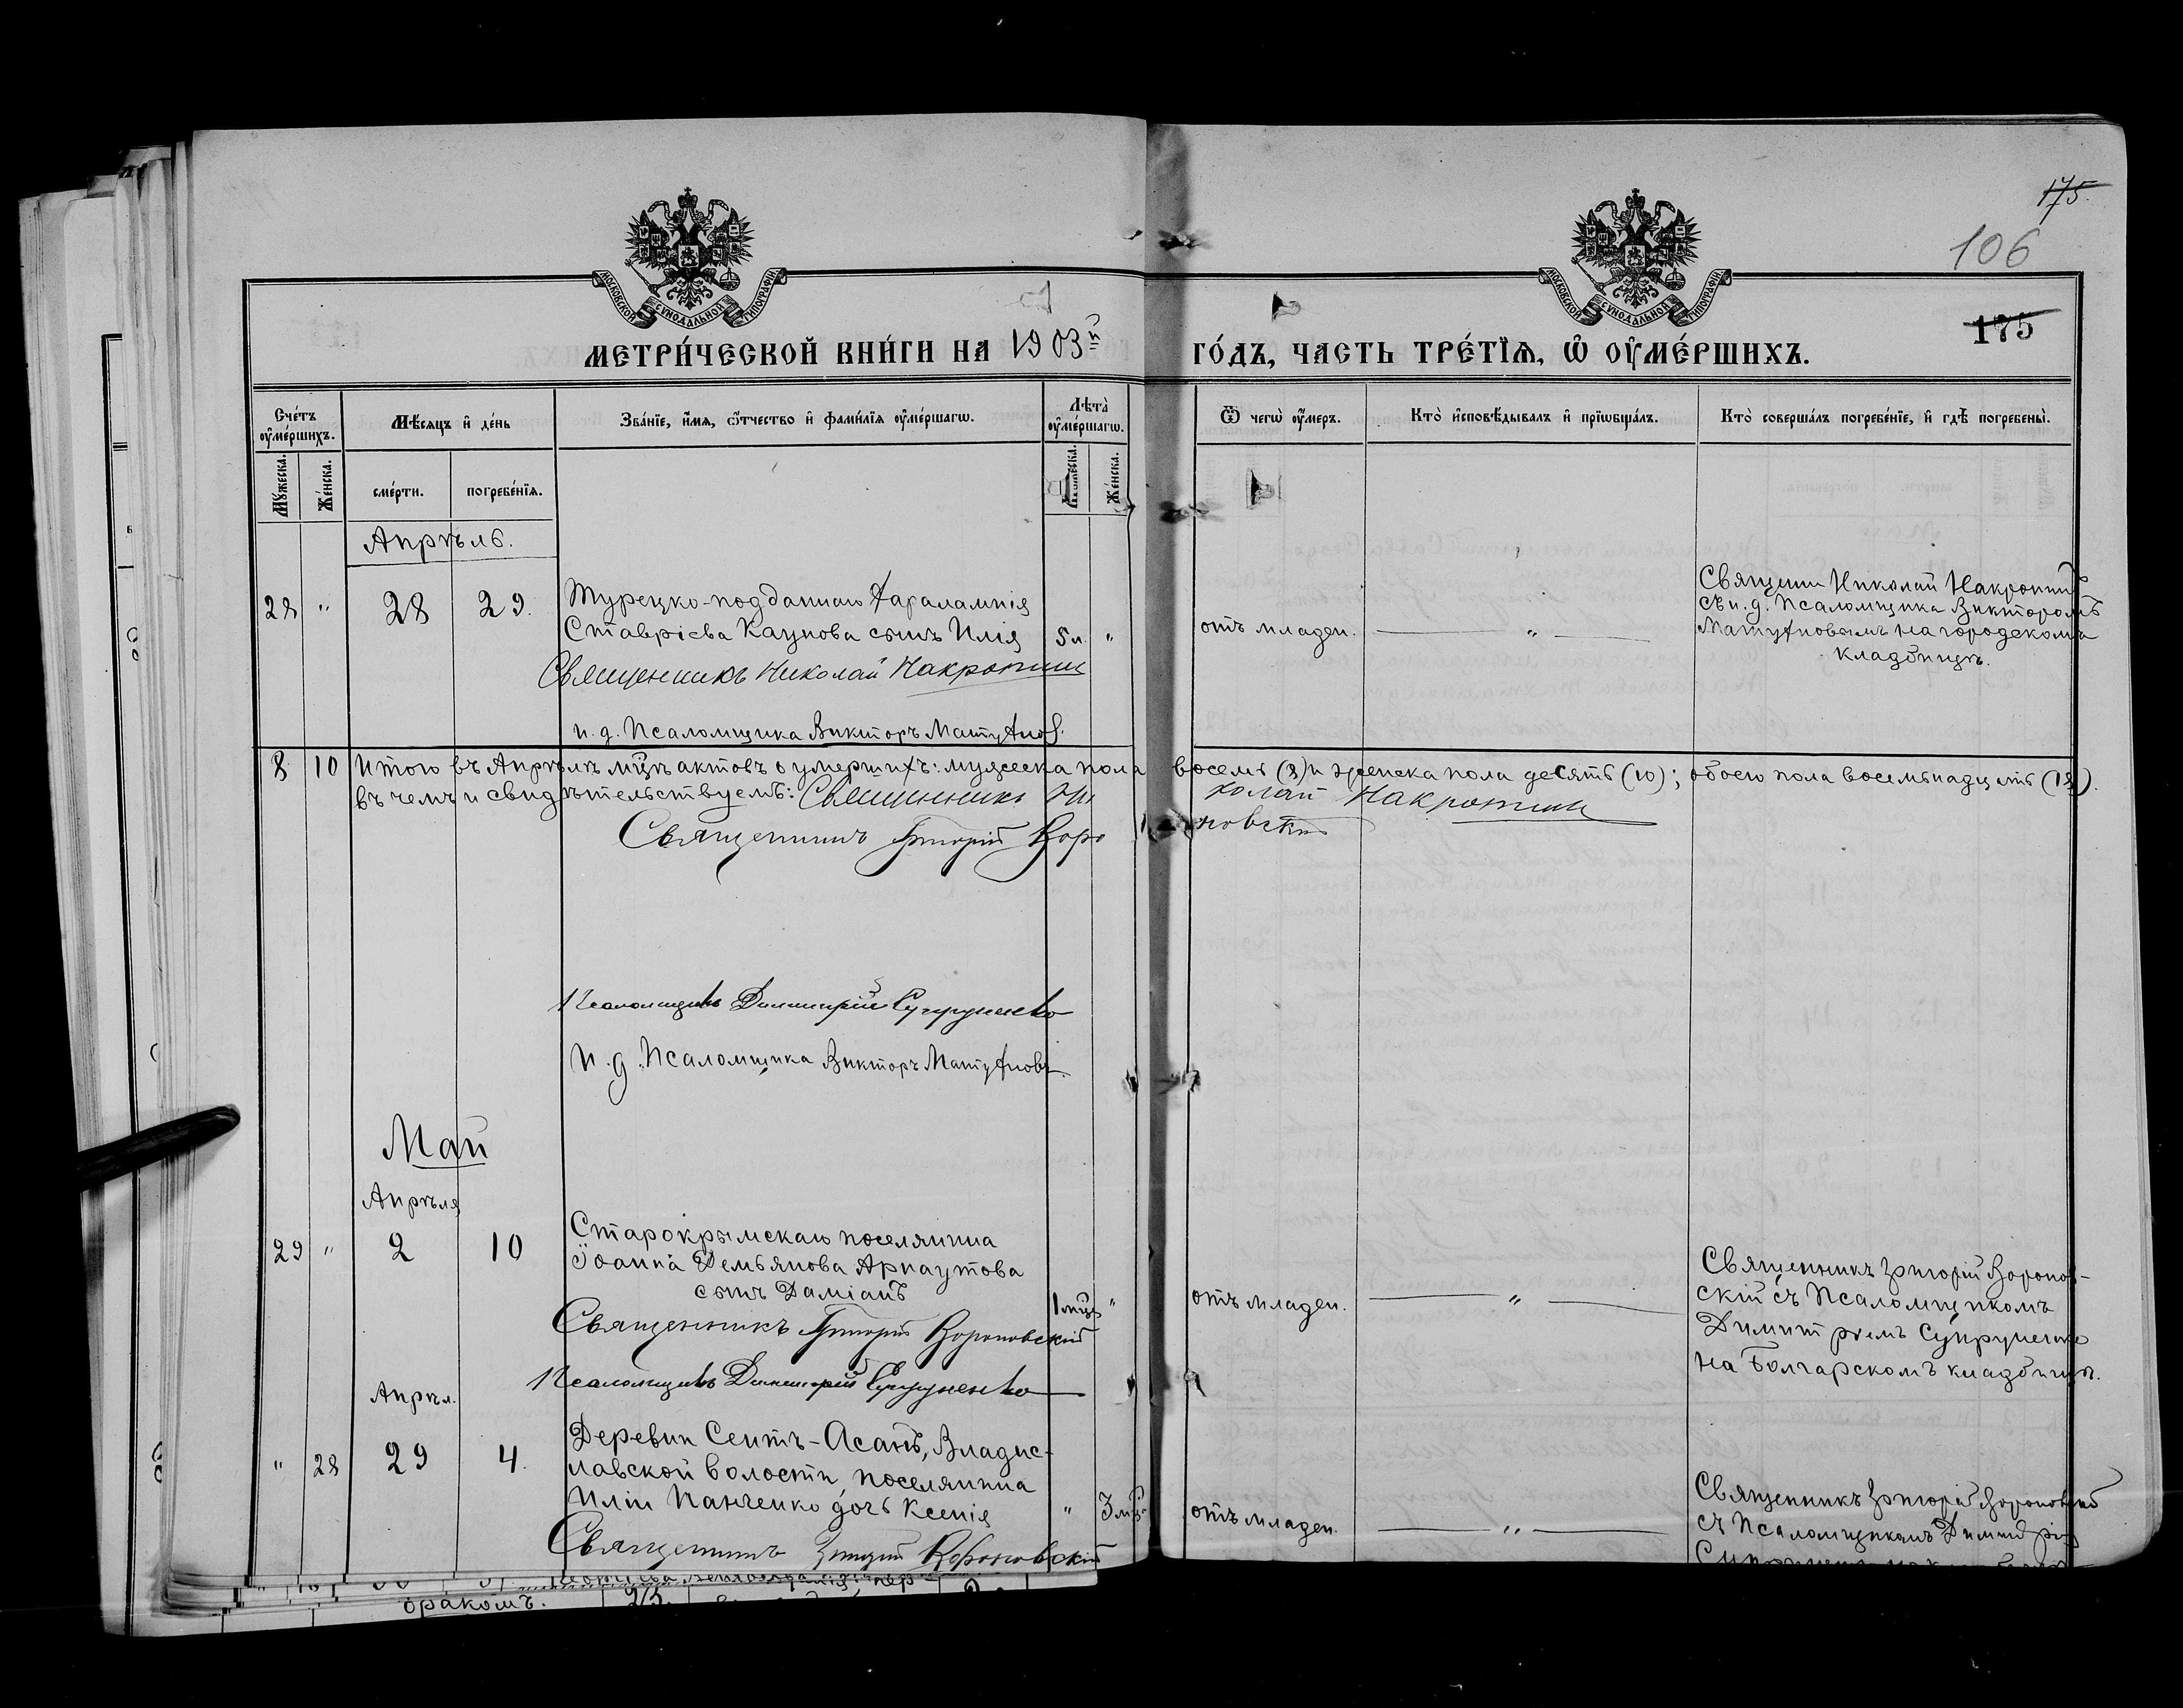 175.
106
МОСКОВСКОЙ СѴНОДАЛЬНОЙ ТИПОГРАФІИ
МОСКОВСКОЙ СѴНОДАЛЬНОЙ ТИПОГРАФІИ
175
МЕТРИ́ЧЕСКОЙ КНИ́ГИ НА 1903й ГО́ДЪ, ЧАСТЬ ТРЕ́ТЇѦ, Ѡ ОУ҆МЕ́РШИХЪ.
Сче́тъ оу҆ме́ршихъ.
Мѣ́сяцъ и҆ де́нь
Зва́нїе, и҆́мя, ѻ҆́тчество и҆ фами́лїя оу҆ме́ршагѡ.
Лѣта̀ оу҆ме́ршагѡ.
Ѿ чегѡ̀ оу҆́меръ.
Кто̀ и҆сповѣ́дывалъ и҆ прїѡбща́лъ.
Кто̀ соверша́лъ погребе́нїе, и҆ гдѣ̀ погребены̀.
Му́жеска.
Же́нска.
сме́рти.
погребе́нїя.
Му́жеска.
Же́нска.
Апрѣль.
28 " 28 29.
Турецко-подданнаго Харалампія
Ставріева Каунова сынъ Илія 5 л. "
Священникъ Николай Накропин
и. д. Псаломщика Викторъ Матухнов.
отъ младен. "
Священн Николай Накропин
съ и. д. Псаломщика Викторомъ
Матухновымъ на городскомъ
кладбищѣ.
8 10 Итого въ Апрѣлѣ мцѣ актовъ о умершихъ: мужеска пола восемь (8) и женска пола десять (10); обоего пола восемьнадцать (18).
въ чемъ и свидѣтельствуемъ: Священникъ Николай Накропин
Священникъ Григорій Вороновскій
Псаломщикъ Димитрій Супруненко
И. д. Псаломщика Викторъ Матухновъ.
Май
Апрѣля
29 " 2 10
Старокрымскаго поселянина
Іоанна Демьянова Арнаутова
сынъ Даміанъ
1 мцъ "
Священникъ Григорій Вороновскій
Псаломщикъ Димитрій Супруненко
отъ младен. "
Священникъ Григорій Воронов-
скій съ Псаломщикомъ
Димитріемъ Супруненко
на Болгарскомъ кладбищѣ.
Апрѣл.
" 28 29 4.
Деревни Сеитъ-Асанъ, Владис-
лавской волости, поселянина
Иліи Панченко дочь Ксенія " 3 мц.
Священникъ Григорій Вороновскій
отъ младен. "
Священникъ Григорій Вороновскій
съ Псаломщикомъ Димитрі
оракомъ.